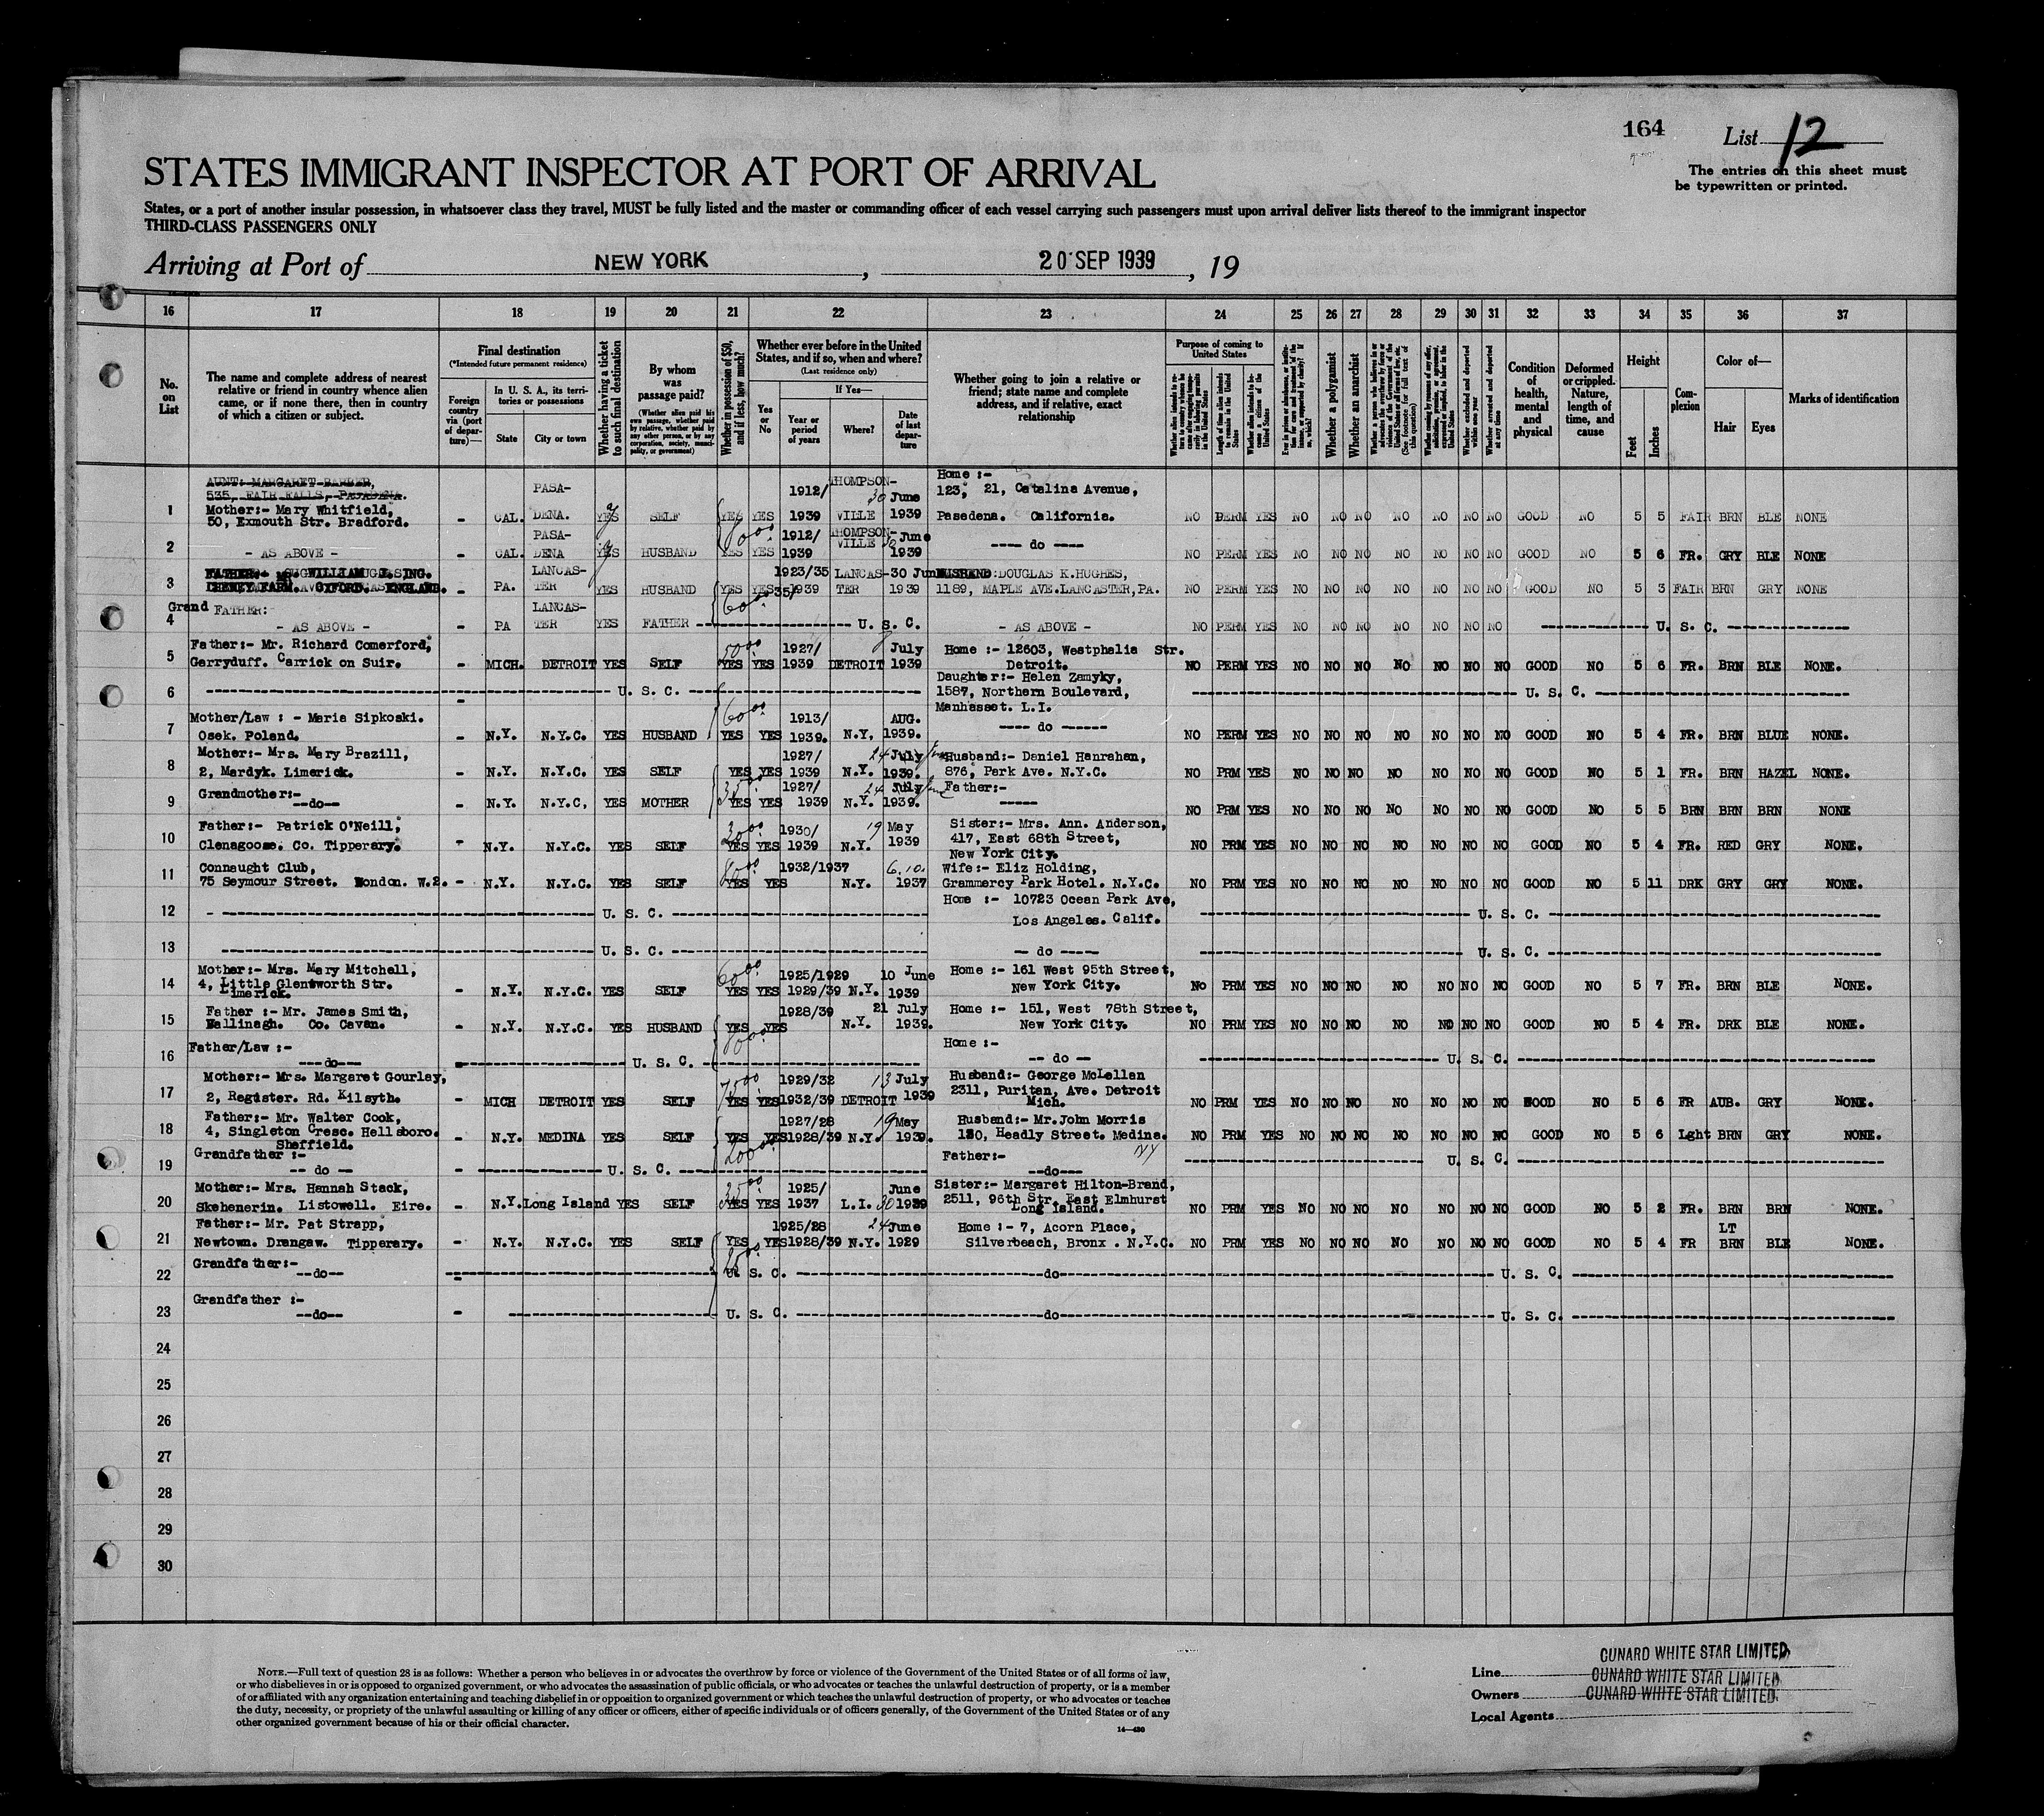 164
List 12
The entries on this sheet must
be typewritten or printed.
STATES IMMIGRANT INSPECTOR AT PORT OF ARRIVAL
States, or a port of another insular possession, in whatsoever class they travel, MUST be fully listed and the master or commanding officer of each vessel carrying such passengers must upon arrival deliver lists thereof to the immigrant inspector
THIRD-CLASS PASSENGERS ONLY
Arriving at Port of NEW YORK, 20 SEP 1939, 19
16 17 18 19 20 21 22 23 24 25 26 27 28 29 30 31 32 33 34 35 36 37
No. on List
The name and complete address of nearest relative or friend in country whence alien came, or if none there, then in country of which a citizen or subject.
Final destination
(*Intended future permanent residence)
Foreign country via (port of departure)—
In U. S. A., its territories or possessions
State
City or town
Whether having a ticket to such final destination
By whom was passage paid?
(Whether alien paid his own passage, whether paid by relative, whether paid by any other person, or by any corporation, society, municipality, or government)
Whether in possession of $50, and if less, how much?
Whether ever before in the United States, and if so, when and where?
(Last residence only)
Yes or No
If Yes—
Year or period of years
Where?
Date of last departure
Whether going to join a relative or friend; state name and complete address, and if relative, exact relationship
Purpose of coming to United States
Length of time alien intends to remain in the United States
Whether alien intends to become a citizen of the United States
Whether a polygamist
Whether an anarchist
Whether excluded and deported within one year
Whether arrested and deported at any time
Condition of health, mental and physical
Deformed or crippled. Nature, length of time, and cause
Height
Feet
Inches
Complexion
Color of—
Hair
Eyes
Marks of identification
AUNT: MARGARET BARBER,
535, FAIR FALLS, PASADENA.
1 Mother:- Mary Whitfield, 50, Exmouth Str. Bradford. - CAL. PASA-DENA. YES SELF YES YES 1912/1939 THOMPSON-VILLE 30 June 1939 Home :- 123, 21, Catalina Avenue, Pasedena. California. NO PERM YES NO NO NO NO NO NO NO GOOD NO 5 5 FAIR BRN BLE NONE
2 - AS ABOVE - - CAL. PASA-DENA YES HUSBAND 800 YES YES 1912/1939 THOMPSON-VILLE 30 June 1939 ---- do ---- NO PERM YES NO NO NO NO NO NO NO GOOD NO 5 6 FR. GRY BLE NONE
3 - PA. LANCAS-TER YES HUSBAND YES YES 1923/35 1939 LANCAS-TER 30 June 1939 HUSBAND: DOUGLAS K.HUGHES, 1189, MAPLE AVE.LANCASTER,PA. NO PERM YES NO NO NO NO NO NO NO GOOD NO 5 3 FAIR BRN GRY NONE
4 Grand FATHER: - AS ABOVE - - PA LANCAS-TER YES FATHER 600 U. S. C. - AS ABOVE - NO PERM YES NO NO NO NO NO NO NO U. S. C.
5 Father:- Mr. Richard Comerford, Gerryduff. Carrick on Suir. - MICH. DETROIT YES SELF 500 YES YES 1927/1939 DETROIT 8 July 1939 Home :- 12603, Westphalia Str. Detroit. NO PERM YES NO NO NO NO NO NO NO GOOD NO 5 6 FR. BRN BLE NONE.
6 U. S. C. Daughter:- Helen Zamyky, 1587, Northern Boulevard, Manhasset. L.I. U. S. C.
7 Mother/Law : - Maria Sipkoski. Osek. Poland. - N.Y. N.Y.C. YES HUSBAND 600 YES YES 1913/1939. N.Y, AUG. 1939. ---- do ------ NO PERM YES NO NO NO NO NO NO NO GOOD NO 5 4 FR. BRN BLUE NONE.
8 Mother:- Mrs. Mary Brazill, 2, Mardyk. Limerick. - N.Y. N.Y.C. YES SELF YES YES 1927/1939 N.Y. 24 July 1939. Husband:- Daniel Hanrahan, 876, Park Ave. N.Y.C. NO PRM YES NO NO NO NO NO NO NO GOOD NO 5 1 FR. BRN HAZEL NONE.
9 Grandmother:- --do-- - N.Y. N.Y.C, YES MOTHER 35 YES YES 1927/1939 N.Y. 24 July 1939. Father:- ----- NO PRM YES NO NO NO NO NO NO NO GOOD NO 5 5 BRN BRN BRN NONE
10 Father:- Patrick O'Neill, Clenagoose. Co. Tipperary. - N.Y. N.Y.C. YES SELF 300 YES YES 1930/1939 N.Y. 19 May 1939 Sister:- Mrs. Ann. Anderson, 417, East 68th Street, New York City. NO PRM YES NO NO NO NO NO NO NO GOOD NO 5 4 FR. RED GRY NONE.
11 Connaught Club, 75 Seymour Street. London. W.2. - N.Y. N.Y.C. YES SELF YES YES 1932/1937 N.Y. 6.10. 1937 Wife:- Eliz Holding, Grammercy Park Hotel. N.Y.C. NO PRM YES NO NO NO NO NO NO NO GOOD NO 5 11 DRK GRY GRY NONE.
12 U. S. C. Home :- 10723 Ocean Park Ave, Los Angeles. Calif. U. S. C.
13 U. S. C. -- do ---- U. S. C.
14 Mother:- Mrs. Mary Mitchell, 4, Little Glentworth Str. Limerick. - N.Y. N.Y.C. YES SELF 600 YES YES 1925/1929 1929/39 N.Y. 10 June 1939 Home :- 161 West 95th Street, New York City. No PRM YES NO NO NO NO NO NO NO GOOD NO 5 7 FR. BRN BLE NONE.
15 Father :- Mr. James Smith, Ballinagh. Co. Cavan. - N.Y. N.Y.C. YES HUSBAND YES YES 1928/39 N.Y. 21 July 1939. Home :- 151, West 78th Street, New York City. NO PRM YES NO NO NO NO NO NO NO GOOD NO 5 4 FR. DRK BLE NONE.
16 Father/Law :- ---do--- U. S. C. 800 Home :- -- do -- U. S. C.
17 Mother:- Mrs. Margaret Gourlay, 2, Register. Rd. Kilsyth. - MICH DETROIT YES SELF 75 YES YES 1929/32 1932/39 DETROIT 13 July 1939 Husband:- George McLellan 2311, Puritan, Ave. Detroit Mich. NO PRM YES NO NO NO NO NO NO NO GOOD NO 5 6 FR AUB. GRY NONE.
18 Father:- Mr. Walter Cook, 4, Singleton Cresc. Hellsboro. Sheffield. - N.Y. MEDINA YES SELF YES YES 1927/28 1928/39 N.Y. 19 May 1939. Husband:- Mr.John Morris 130, Headly Street. Medina. NY NO PRM YES NO NO NO NO NO NO NO GOOD NO 5 6 Lght BRN GRY NONE.
19 Grandfather :- -- do -- - U. S. C. 200 Father:- --do--- U. S. C.
20 Mother:- Mrs. Hannah Stack, Skehenerin. Listowell. Eire. - N.Y. Long Island YES SELF 35 YES YES 1925/1937 L.I. 30 June 1939 Sister:- Margaret Hilton-Brand, 2511, 96th Str. East Elmhurst Long Island. NO PRM YES NO NO NO NO NO NO NO GOOD NO 5 2 FR. BRN BRN NONE.
21 Father:- Mr. Pat Strapp, Newtown. Drangaw. Tipperary. - N.Y. N.Y.C. YES SELF YES YES 1925/28 1928/39 N.Y. 24 June 1929 Home :- 7, Acorn Place, Silverbeach, Bronx . N.Y.C. NO PRM YES NO NO NO NO NO NO NO GOOD NO 5 4 FR LT BRN BLE NONE.
22 Grandfather:- --do-- U. S. C. do U. S. C.
23 Grandfather :- --do-- - U. S. C. do U. S. C.
24
25
26
27
28
29
30
NOTE.—Full text of question 28 is as follows: Whether a person who believes in or advocates the overthrow by force or violence of the Government of the United States or of all forms of law,
or who disbelieves in or is opposed to organized government, or who advocates the assassination of public officials, or who advocates or teaches the unlawful destruction of property, or is a member
of or affiliated with any organization entertaining and teaching disbelief in or opposition to organized government or which teaches the unlawful destruction of property, or who advocates or teaches
the duty, necessity, or propriety of the unlawful assaulting or killing of any officer or officers, either of specific individuals or of officers generally, of the Government of the United States or of any
other organized government because of his or their official character.
14—430
Line CUNARD WHITE STAR LIMITED
Owners CUNARD WHITE STAR LIMITED
Local Agents CUNARD WHITE STAR LIMITED